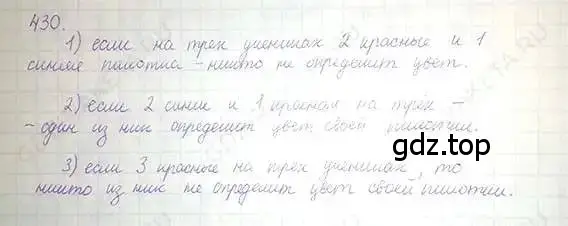 430.
1) если на трех ученицах 2 красные и 1
синяя пилотка - никто не определит цвет.
2) если 2 синие и 1 красная на трёх -
- один из них определит цвет своей пилотки.
гдз.топ
3) если 3 красные на трех ученицах, то
никто из них не определит цвет своей пилотки.